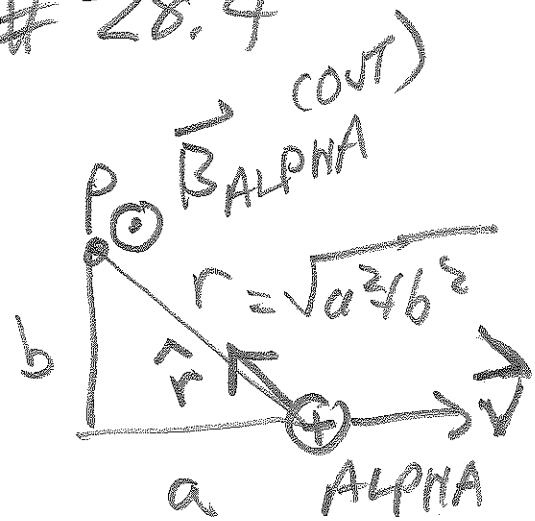 # 28.4
(OUT)
B ALPHA
P
r = √a²+b²
b
r̂
v
a
ALPHA